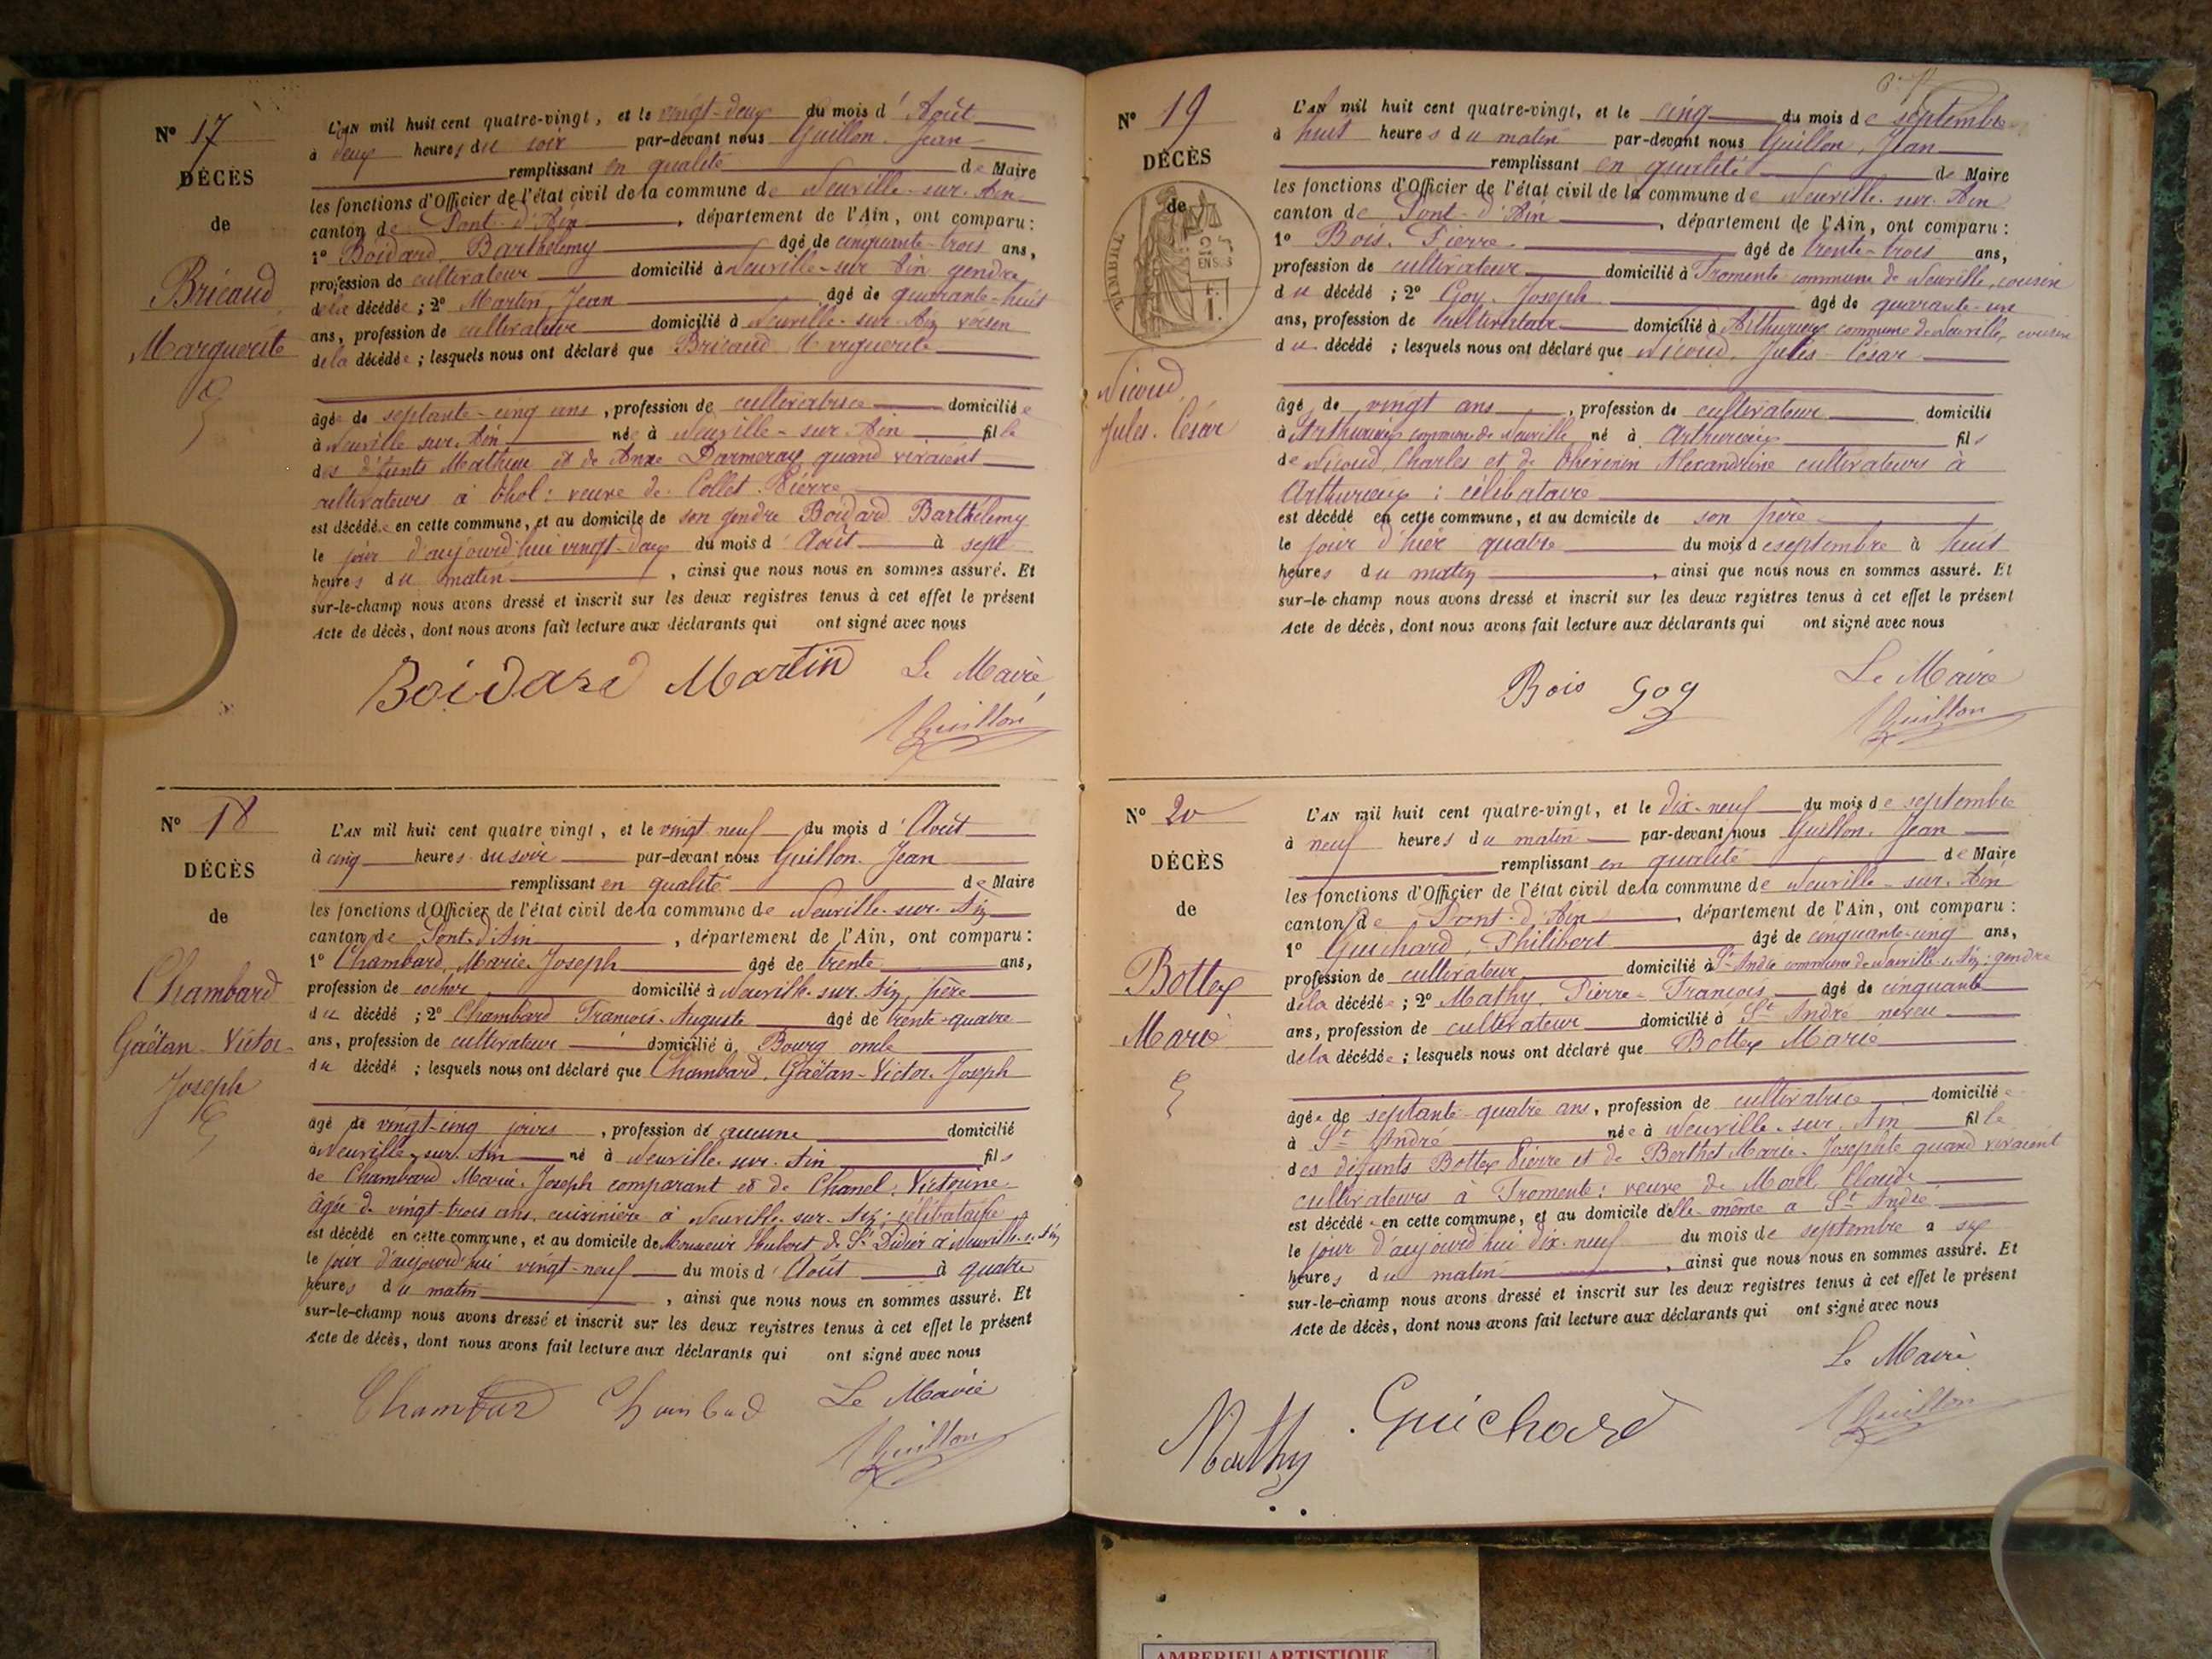 N° 17
DÉCÈS
de
Bricaud
Marguerite
L'AN mil huit cent quatre-vingt, et le vingt-deux du mois d'Août
à deux heures du soir par-devant nous Guillon, Jean
remplissant en qualité de Maire
les fonctions d'Officier de l'état civil de la commune de Neuville-sur-Ain
canton de Pont-d'Ain, département de l'Ain, ont comparu :
1° Boidard, Barthélemy âgé de cinquante-trois ans,
profession de cultivateur domicilié à Neuville-sur-Ain gendre
de la décédée ; 2° Martin, Jean âgé de quarante-huit
ans, profession de cultivateur domicilié à Neuville-sur-Ain voisin
de la décédée ; lesquels nous ont déclaré que Bricaud Marguerite
âgée de septante-cinq ans, profession de cultivatrice domiciliée
à Neuville sur Ain née à Neuville-sur-Ain fille
des défunts Mathieu et de Anne Darmeray quand vivaient
cultivateurs à Thol : veuve de Collet Pierre
est décédée en cette commune, et au domicile de son gendre Boidard Barthélemy
le jour d'aujourd'hui vingt-deux du mois d'Août à sept
heures du matin, ainsi que nous nous en sommes assuré. Et
sur-le-champ nous avons dressé et inscrit sur les deux registres tenus à cet effet le présent
Acte de décès, dont nous avons fait lecture aux déclarants qui ont signé avec nous
Boidard Martin Le Maire
Guillon
N° 18
DÉCÈS
de
Chambard
Gaëtan-Victor-
Joseph
L'AN mil huit cent quatre vingt, et le vingt neuf du mois d'Août
à cinq heures du soir par-devant nous Guillon, Jean
remplissant en qualité de Maire
les fonctions d'Officier de l'état civil de la commune de Neuville-sur-Ain
canton de Pont-d'Ain, département de l'Ain, ont comparu :
1° Chambard, Marie-Joseph âgé de trente ans,
profession de cocher domicilié à Neuville-sur-Ain, père
du décédé ; 2° Chambard François-Auguste âgé de trente-quatre
ans, profession de cultivateur domicilié à Bourg oncle
du décédé ; lesquels nous ont déclaré que Chambard, Gaëtan-Victor-Joseph
âgé de vingt-cinq jours, profession de aucune domicilié
à Neuville-sur-Ain né à Neuville-sur-Ain fils
de Chambard Marie-Joseph comparant et de Chanel, Victorine
âgée de vingt-trois ans, cuisinière à Neuville-sur-Ain ; célibataire
est décédé en cette commune, et au domicile de Monsieur Hubert de St Didier à Neuville-s-Ain
le jour d'aujourd'hui vingt-neuf du mois d'Août à quatre
heures du matin, ainsi que nous nous en sommes assuré. Et
sur-le-champ nous avons dressé et inscrit sur les deux registres tenus à cet effet le présent
Acte de décès, dont nous avons fait lecture aux déclarants qui ont signé avec nous
Chambard Chambard Le Maire
Guillon
N° 19
DÉCÈS
de
Nicoud,
Jules-César
L'AN mil huit cent quatre-vingt, et le cinq du mois de septembre
à huit heures du matin par-devant nous Guillon, Jean
remplissant en qualité de Maire
les fonctions d'Officier de l'état civil de la commune de Neuville-sur-Ain
canton de Pont-d'Ain, département de l'Ain, ont comparu :
1° Bois, Pierre âgé de trente-trois ans,
profession de cultivateur domicilié à Fromente commune de Neuville, cousin
du décédé ; 2° Goy, Joseph âgé de quarante-un
ans, profession de cultivateur domicilié à Arthurieux commune de Neuville, cousin
du décédé ; lesquels nous ont déclaré que Nicoud, Jules-César
âgé de vingt ans, profession de cultivateur domicilié
à Arthurieux commune de Neuville né à Arthurieux fils
de Nicoud, Charles et de Thévenin Alexandrine cultivateurs à
Arthurieux : célibataire
est décédé en cette commune, et au domicile de son père
le jour d'hier quatre du mois de septembre à huit
heures du matin, ainsi que nous nous en sommes assuré. Et
sur-le-champ nous avons dressé et inscrit sur les deux registres tenus à cet effet le présent
Acte de décès, dont nous avons fait lecture aux déclarants qui ont signé avec nous
Bois Goy Le Maire
Guillon
N° 20
DÉCÈS
de
Bottex
Marie
L'AN mil huit cent quatre-vingt, et le dix-neuf du mois de septembre
à neuf heures du matin par-devant nous Guillon, Jean
remplissant en qualité de Maire
les fonctions d'Officier de l'état civil de la commune de Neuville-sur-Ain
canton de Pont-d'Ain, département de l'Ain, ont comparu :
1° Guichard, Philibert âgé de cinquante-cinq ans,
profession de cultivateur domicilié à St André commune de Neuville-s-Ain ; gendre
de la décédée ; 2° Mathy, Pierre-François âgé de cinquante
ans, profession de cultivateur domicilié à St André neveu
de la décédée ; lesquels nous ont déclaré que Bottex Marie
âgée de septante-quatre ans, profession de cultivatrice domiciliée
à St André née à Neuville-sur-Ain fille
des défunts Bottex Pierre et de Berthet Marie-Josephte quand vivaient
cultivateurs à Fromente : veuve de Morel Claude
est décédée en cette commune, et au domicile d'elle-même à St André
le jour d'aujourd'hui dix-neuf du mois de septembre à six
heures du matin, ainsi que nous nous en sommes assuré. Et
sur-le-champ nous avons dressé et inscrit sur les deux registres tenus à cet effet le présent
Acte de décès, dont nous avons fait lecture aux déclarants qui ont signé avec nous
Le Maire
Mathy Guichard Guillon
AMBERIEU ARTISTIQUE